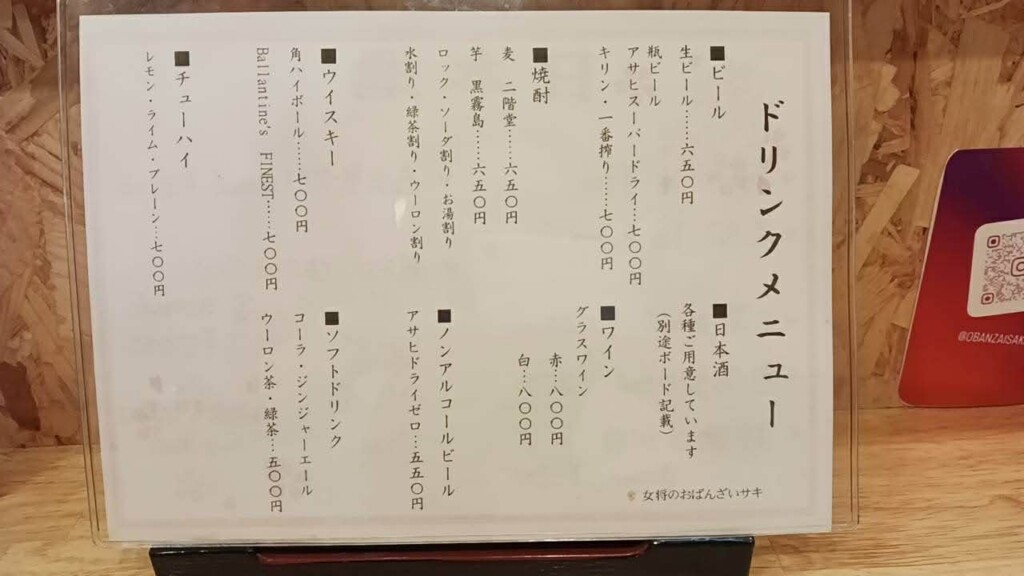 ドリンクメニュー
■ビール
生ビール……六五〇円
瓶ビール
アサヒスーパードライ…七〇〇円
キリン・一番搾り……七〇〇円
■焼酎
麦 二階堂……六五〇円
芋 黒霧島……六五〇円
ロック・ソーダ割り・お湯割り
水割り・緑茶割り・ウーロン割り
■ウイスキー
角ハイボール……七〇〇円
Ballantine's FINEST……七〇〇円
■チューハイ
レモン・ライム・プレーン…七〇〇円
■日本酒
各種ご用意しています
(別途ボード記載)
■ワイン
グラスワイン
赤…八〇〇円
白…八〇〇円
■ノンアルコールビール
アサヒドライゼロ…五五〇円
■ソフトドリンク
コーラ・ジンジャーエール
ウーロン茶・緑茶…五〇〇円
女将のおばんざいサキ
@OBANZAISAK